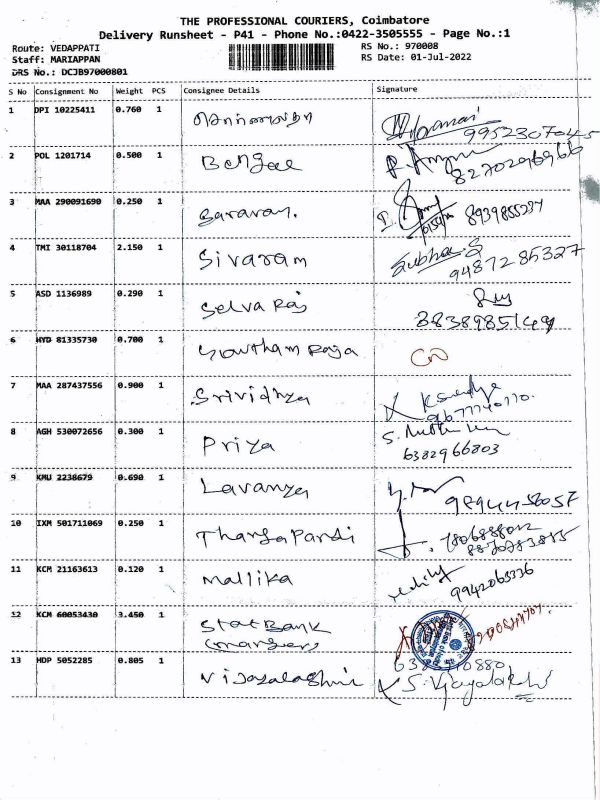 THE PROFESSIONAL COURIERS, Coimbatore
Delivery Runsheet - P41 - Phone No.:0422-3505555 - Page No.:1
Route: VEDAPPATI
Staff: MARIAPPAN
DRS No.: DCJB97000801
RS No.: 970008
RS Date: 01-Jul-2022
S No Consignment No Weight PCS Consignee Details Signature
1 DPI 10225411 0.760 1
9952307045
2 POL 1201714 0.500 1
8270296966
3 MAA 290091690 0.250 1 Saravan.
8939855237
4 TMI 30118704 2.150 1 Sivaram Subha.S
9487285327
5 ASD 1136989 0.290 1 Selva Raj
8838985149
6 HYD 81335730 0.700 1 Gowtham Raja
7 MAA 287437556 0.900 1 Srividhya
9677740110.
8 AGH 530072656 0.300 1 Priya
6382966803
9 KMU 2238679 0.690 1 Lavanya
9894456057
10 IXM 501711069 0.250 1 Thanga Pandi
11 KCM 21163613 0.120 1 Mallika
9942065336
12 KCM 60053430 3.450 1 Stat Bank
(manger)
13 HDP 5052285 0.805 1 Vijayalashmi
S. Vijayalakshi